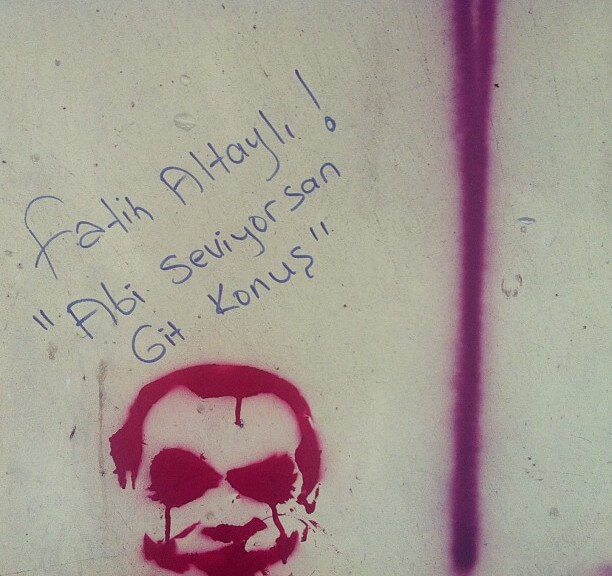 Fatih Altaylı!
"Abi seviyorsan
Git Konuş"